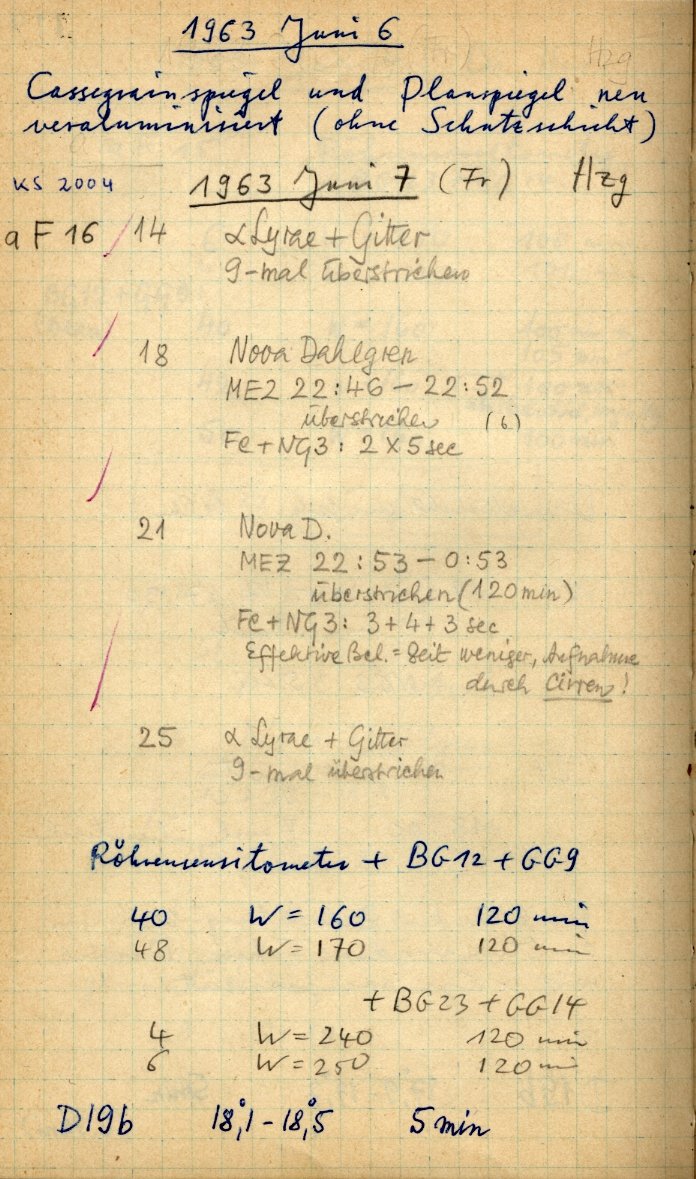 1963 Juni 6
Cassegrainspiegel und Planspiegel neu
veraluminisiert (ohne Schutzschicht)
KS 2004 1963 Juni 7 (Fr) Hzg
a F 16 14 α Lyrae + Gitter
9-mal überstrichen
18 Nova Dahlgren
MEZ 22:46 – 22:52
überstrichen (6)
Fe + NG3: 2 x 5 sec
21 Nova D.
MEZ 22:53 – 0:53
überstrichen (120 min)
Fe + NG3: 3 + 4 + 3 sec
Effektive Bel. = Zeit weniger, Aufnahme
durch Cirren!
25 α Lyrae + Gitter
9-mal überstrichen
Röhrensensitometer + BG12 + GG9
40 W = 160 120 min
48 W = 170 120 min
+ BG23 + GG14
4 W = 240 120 min
6 W = 250 120 min
D19b 18°,1 – 18°,5 5 min